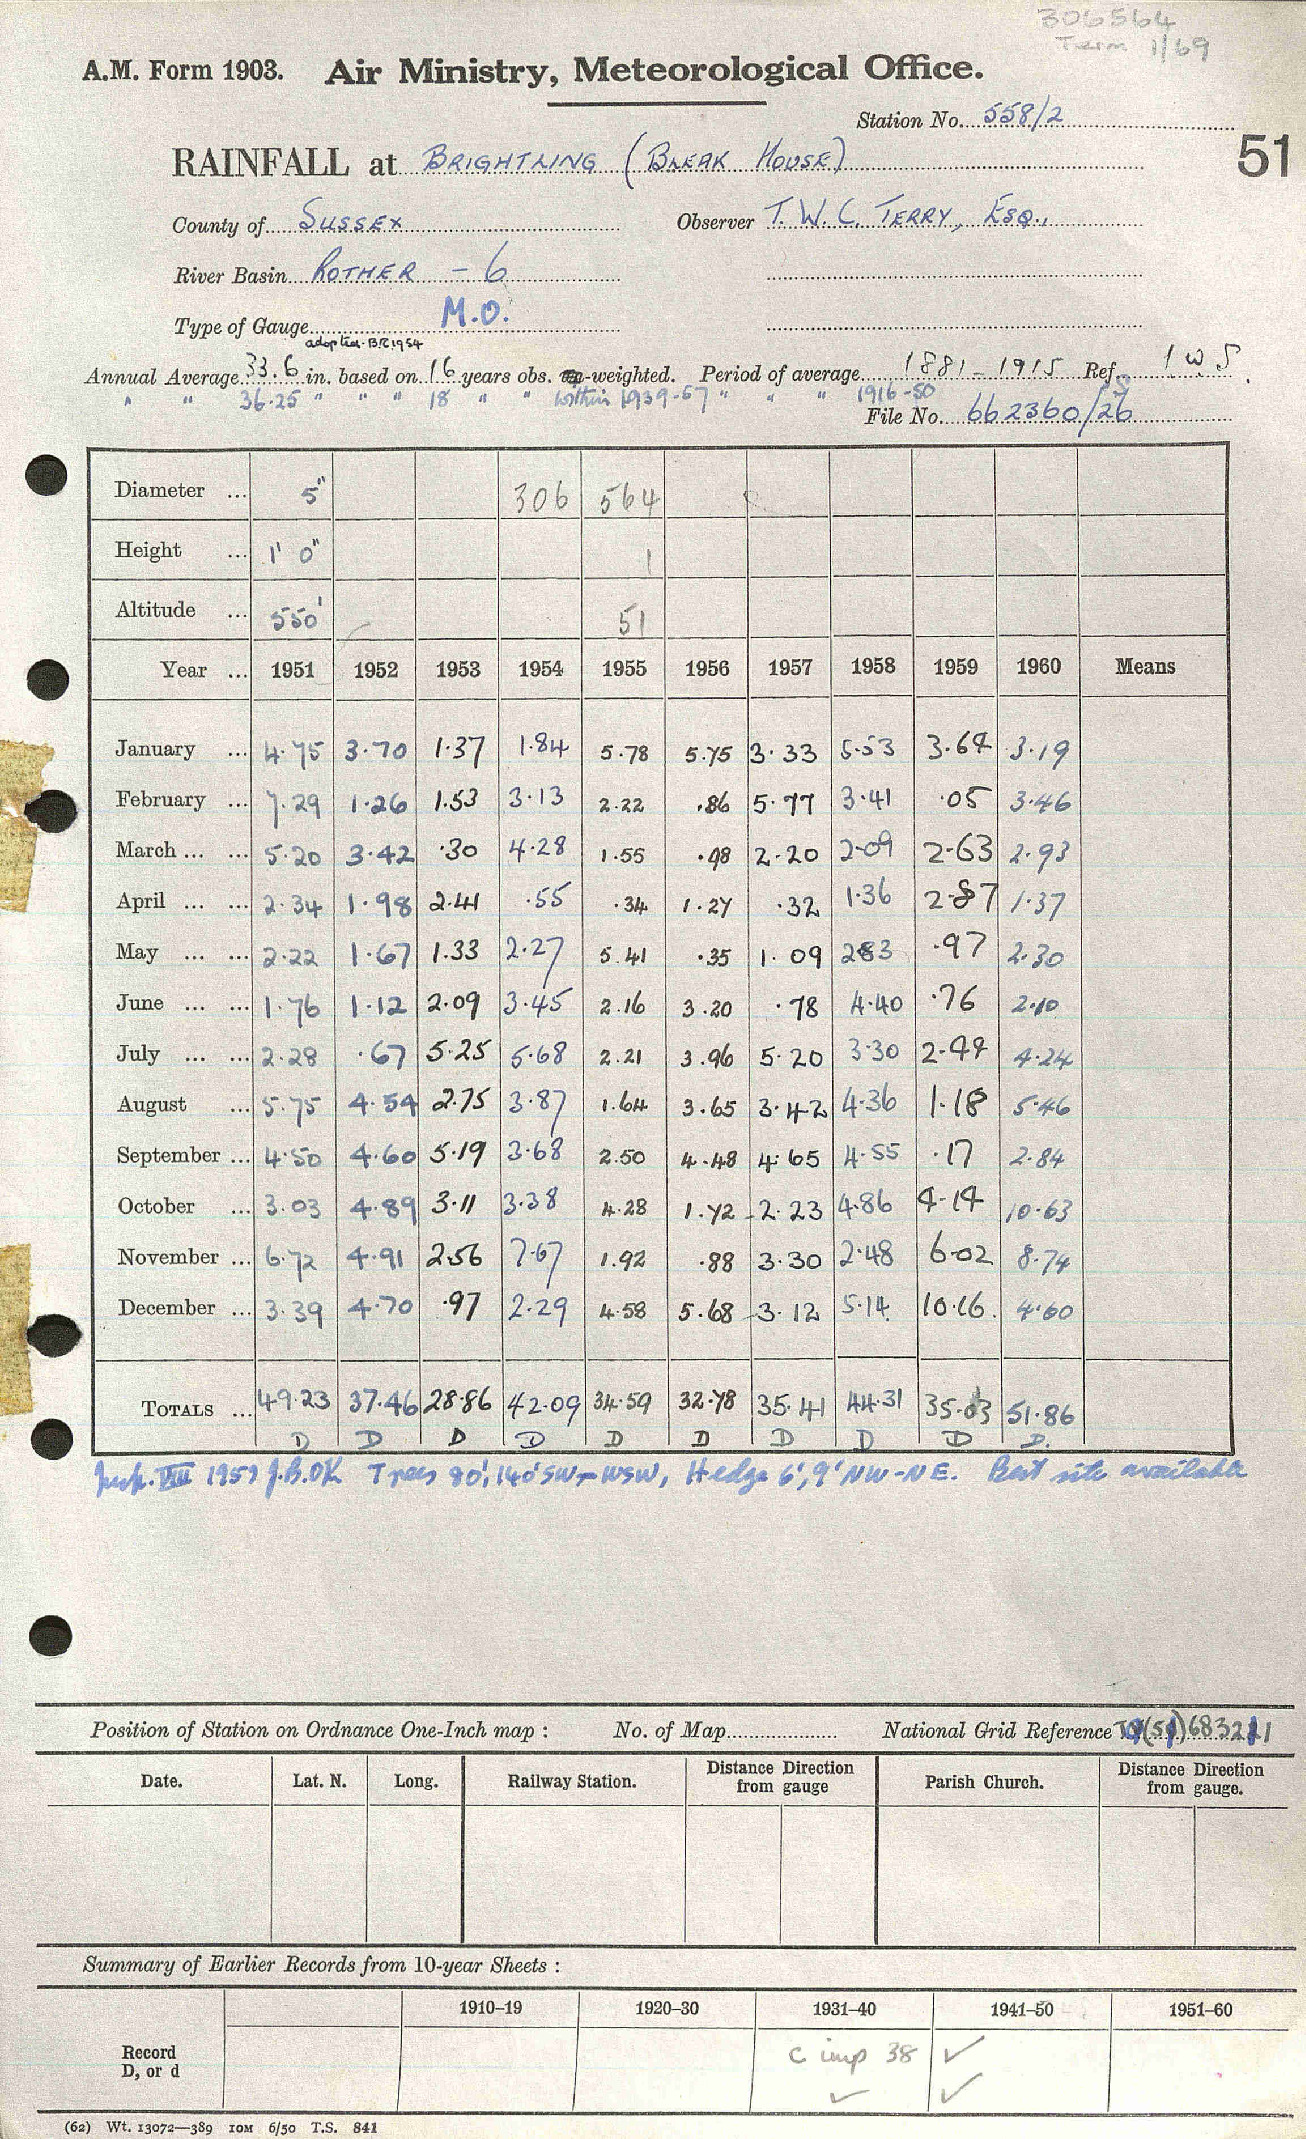 306564
Term 1/69
A.M. Form 1903. Air Ministry, Meteorological Office.
Station No. 558/2
51
RAINFALL at BRIGHTLING (BLEAK HOUSE)
County of SUSSEX Observer T.W.C. TERRY, ESQ.,
River Basin ROTHER - 6
Type of Gauge M.O.
adopted BR 1954
Annual Average 33.6 in. based on 16 years obs. -weighted. Period of average 1881-1915 Ref. 1 W S.
" " 36.25 " " " 18 " " within 1939-57 " " " 1916-50
File No. 662360/26
Diameter ... 5" 306 564
Height ... 1' 0" 1
Altitude ... 550' 51
Year ... 1951 1952 1953 1954 1955 1956 1957 1958 1959 1960 Means
January ... 4.75 3.70 1.37 1.84 5.78 5.75 3.33 5.53 3.64 3.19
February ... 7.29 1.26 1.53 3.13 2.22 .86 5.77 3.41 .05 3.46
March ... ... 5.20 3.42 .30 4.28 1.55 .98 2.20 2.09 2.63 2.93
April ... ... 2.34 1.98 2.41 .55 .34 1.27 .32 1.36 2.87 1.37
May ... ... 2.22 1.67 1.33 2.27 5.41 .35 1.09 2.83 .97 2.30
June ... ... 1.76 1.12 2.09 3.45 2.16 3.20 .78 4.40 .76 2.10
July ... ... 2.28 .67 5.25 5.68 2.21 3.96 5.20 3.30 2.44 4.24
August ... 5.75 4.54 2.75 3.87 1.64 3.65 3.42 4.36 1.18 5.46
September ... 4.50 4.60 5.19 3.68 2.50 4.48 4.65 4.55 .17 2.84
October ... 3.03 4.89 3.11 3.38 4.28 1.72 2.23 4.86 4.14 10.63
November ... 6.72 4.91 2.56 7.67 1.92 .88 3.30 2.48 6.02 8.74
December ... 3.39 4.70 .97 2.29 4.58 5.68 3.12 5.14 10.16 4.60
TOTALS ... 49.23 37.46 28.86 42.09 34.59 32.78 35.41 44.31 35.03 51.86
D D D D D D D D D D.
Insp. VIII 1959 J.B. OK Trees 80', 140' SW-WSW, Hedge 6', 9' NW-NE. Best site available
Position of Station on Ordnance One-Inch map : No. of Map National Grid Reference TQ(51)683211
Date. Lat. N. Long. Railway Station. Distance Direction from gauge Parish Church. Distance Direction from gauge.
Summary of Earlier Records from 10-year Sheets :
1910–19 1920–30 1931–40 1941–50 1951–60
Record
D, or d
c imp 38 ✓
✓ ✓
(62) Wt. 13072—389 10M 6/50 T.S. 841